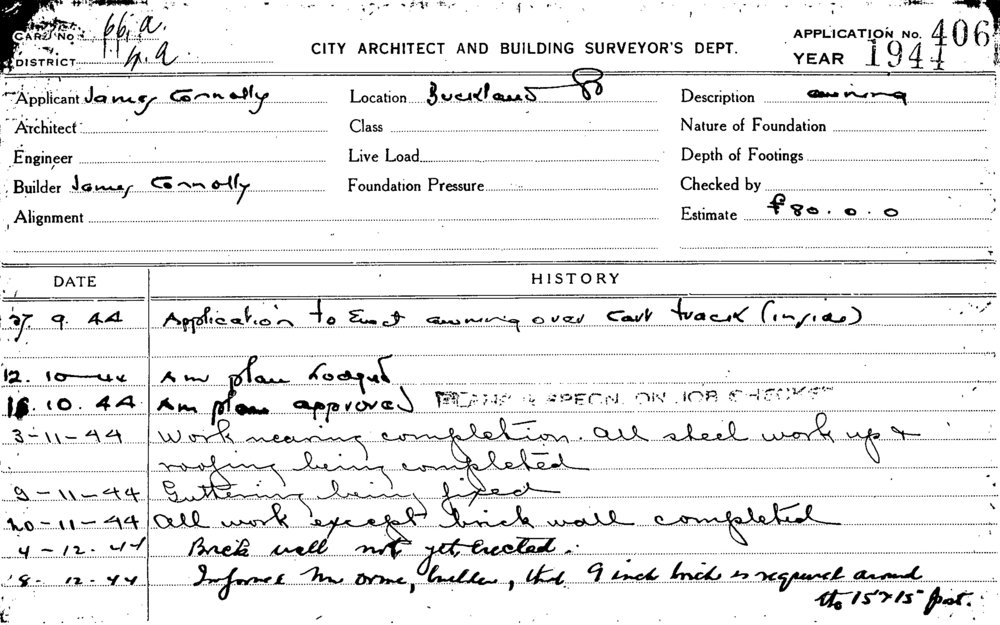 CARD No. 66.a.
DISTRICT
CITY ARCHITECT AND BUILDING SURVEYOR'S DEPT.
APPLICATION No. 406
YEAR 1944
Applicant James Connolly
Location Buckland
Description awning
Architect
Class
Nature of Foundation
Engineer
Live Load
Depth of Footings
Builder James Connolly
Foundation Pressure
Checked by
Alignment
Estimate £80.0.0
DATE HISTORY
27.9.44 Application to Erect awning over cart track (inside)
12.10.44 Am plan Lodged
16.10.44 Am plans approved PLANS & SPECN. ON JOB CHECKED
3-11-44 Work nearing completion. All steel work up &
roofing being completed
9-11-44 Guttering being fixed
20-11-44 All work except brick wall completed
4-12.44 Brick wall not yet erected.
8.12.44 Informed Mr Orme, builder, that 9 inch brick is required around
the 15 x 15 post.